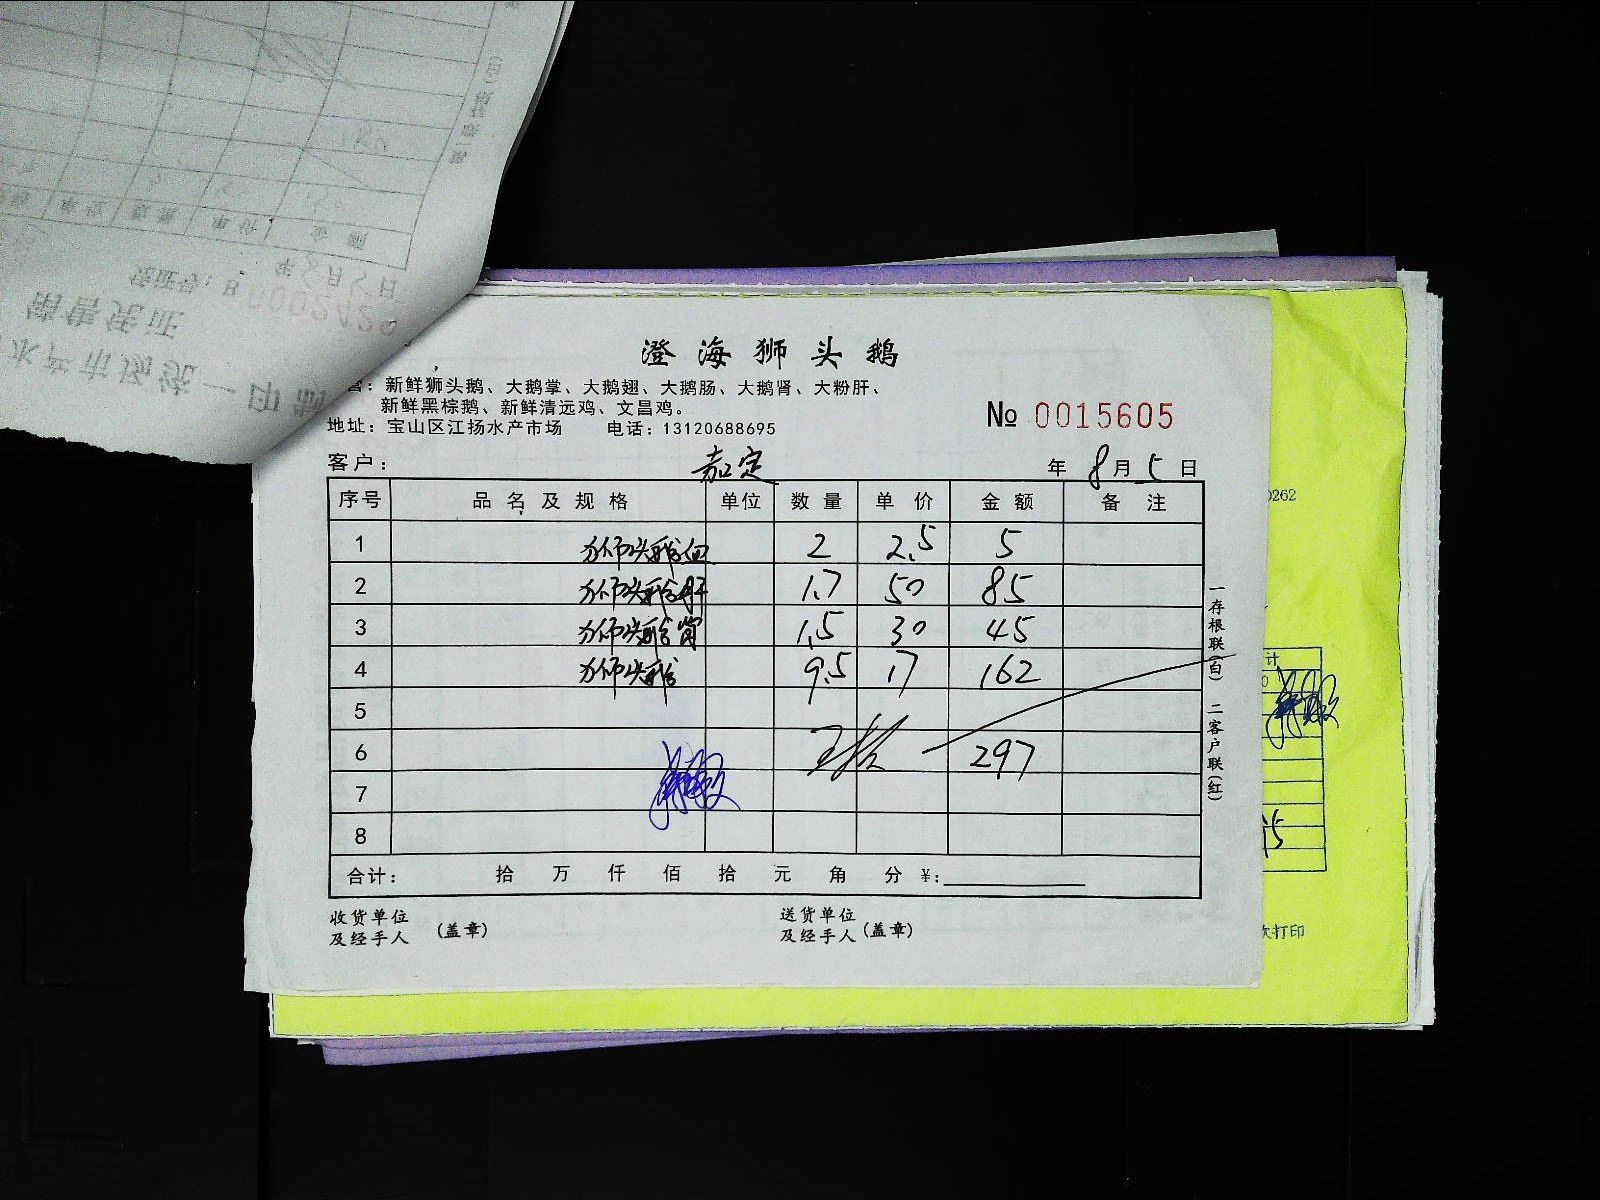 澄海狮头鹅
营：新鲜狮头鹅、大鹅掌、大鹅翅、大鹅肠、大鹅肾、大粉肝、
新鲜黑棕鹅、新鲜清远鸡、文昌鸡。
地址：宝山区江扬水产市场 电话：13120688695
№ 0015605
客户： 嘉定 年 8月5日
序号 品名及规格 单位 数量 单价 金额 备注
1 狮头鹅血 2 2.5 5
2 狮头鹅肝 1.7 50 85
3 狮头鹅 1.5 30 45
4 狮头鹅 9.5 17 162
5
6 297
7
8
合计： 拾 万 仟 佰 拾 元 角 分 ¥:
收货单位
及经手人 （盖章）
送货单位
及经手人（盖章）
一存根联（白） 二客户联（红）
0262
计
次打印
销售凭证
凭证号：B 0002429
年8月5日
金额
单价
数量